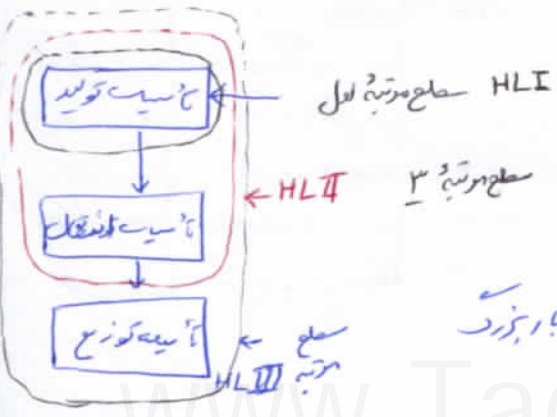 تأسیسات تولید
سطح مرتبهٔ اول HLI
← HLII سطح مرتبهٔ ۳
تأسیسات انتقال
بار بزرگ
تأسیسات توزیع
← سطح
مرتبه HLIII
www.Ta